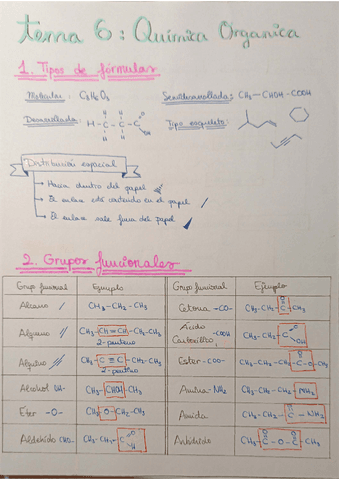 tema 6: Química Organica
1. Tipos de fórmulas
Molecular: C₃H₆O₃ Semidesarrollada: CH₃-CHOH-COOH
Desarrollada: H-C-C-C Tipo esqueleto:
Distribución espacial
→ Hacia dentro del papel
→ El enlace está contenido en el papel
→ El enlace sale fuera del papel
2. Grupos funcionales
Grupo funcional Ejemplo Grupo funcional Ejemplo
Alcano CH₃-CH₂-CH₃ Cetona -CO- CH₃-CH₂-C-CH₃
Alqueno CH₃-CH=CH-CH₂-CH₃ Ácido Carboxílico -COOH CH₃-CH₂-C
2-penteno
Alquino CH₃-C≡C-CH₂-CH₃ Ester -COO- CH₃-CH₂-CH₂-C-O-CH₃
2-pentino
Alcohol OH- CH₃-CHOH-CH₃ Amina -NH₂ CH₃-CH₂-CH₂-NH₂
Eter -O- CH₃-O-CH₂-CH₃ Amida CH₃-CH₂-C-NH₂
Aldehído CHO- CH₃-CH₂-C Anhídrido CH₃-C-O-C-CH₃